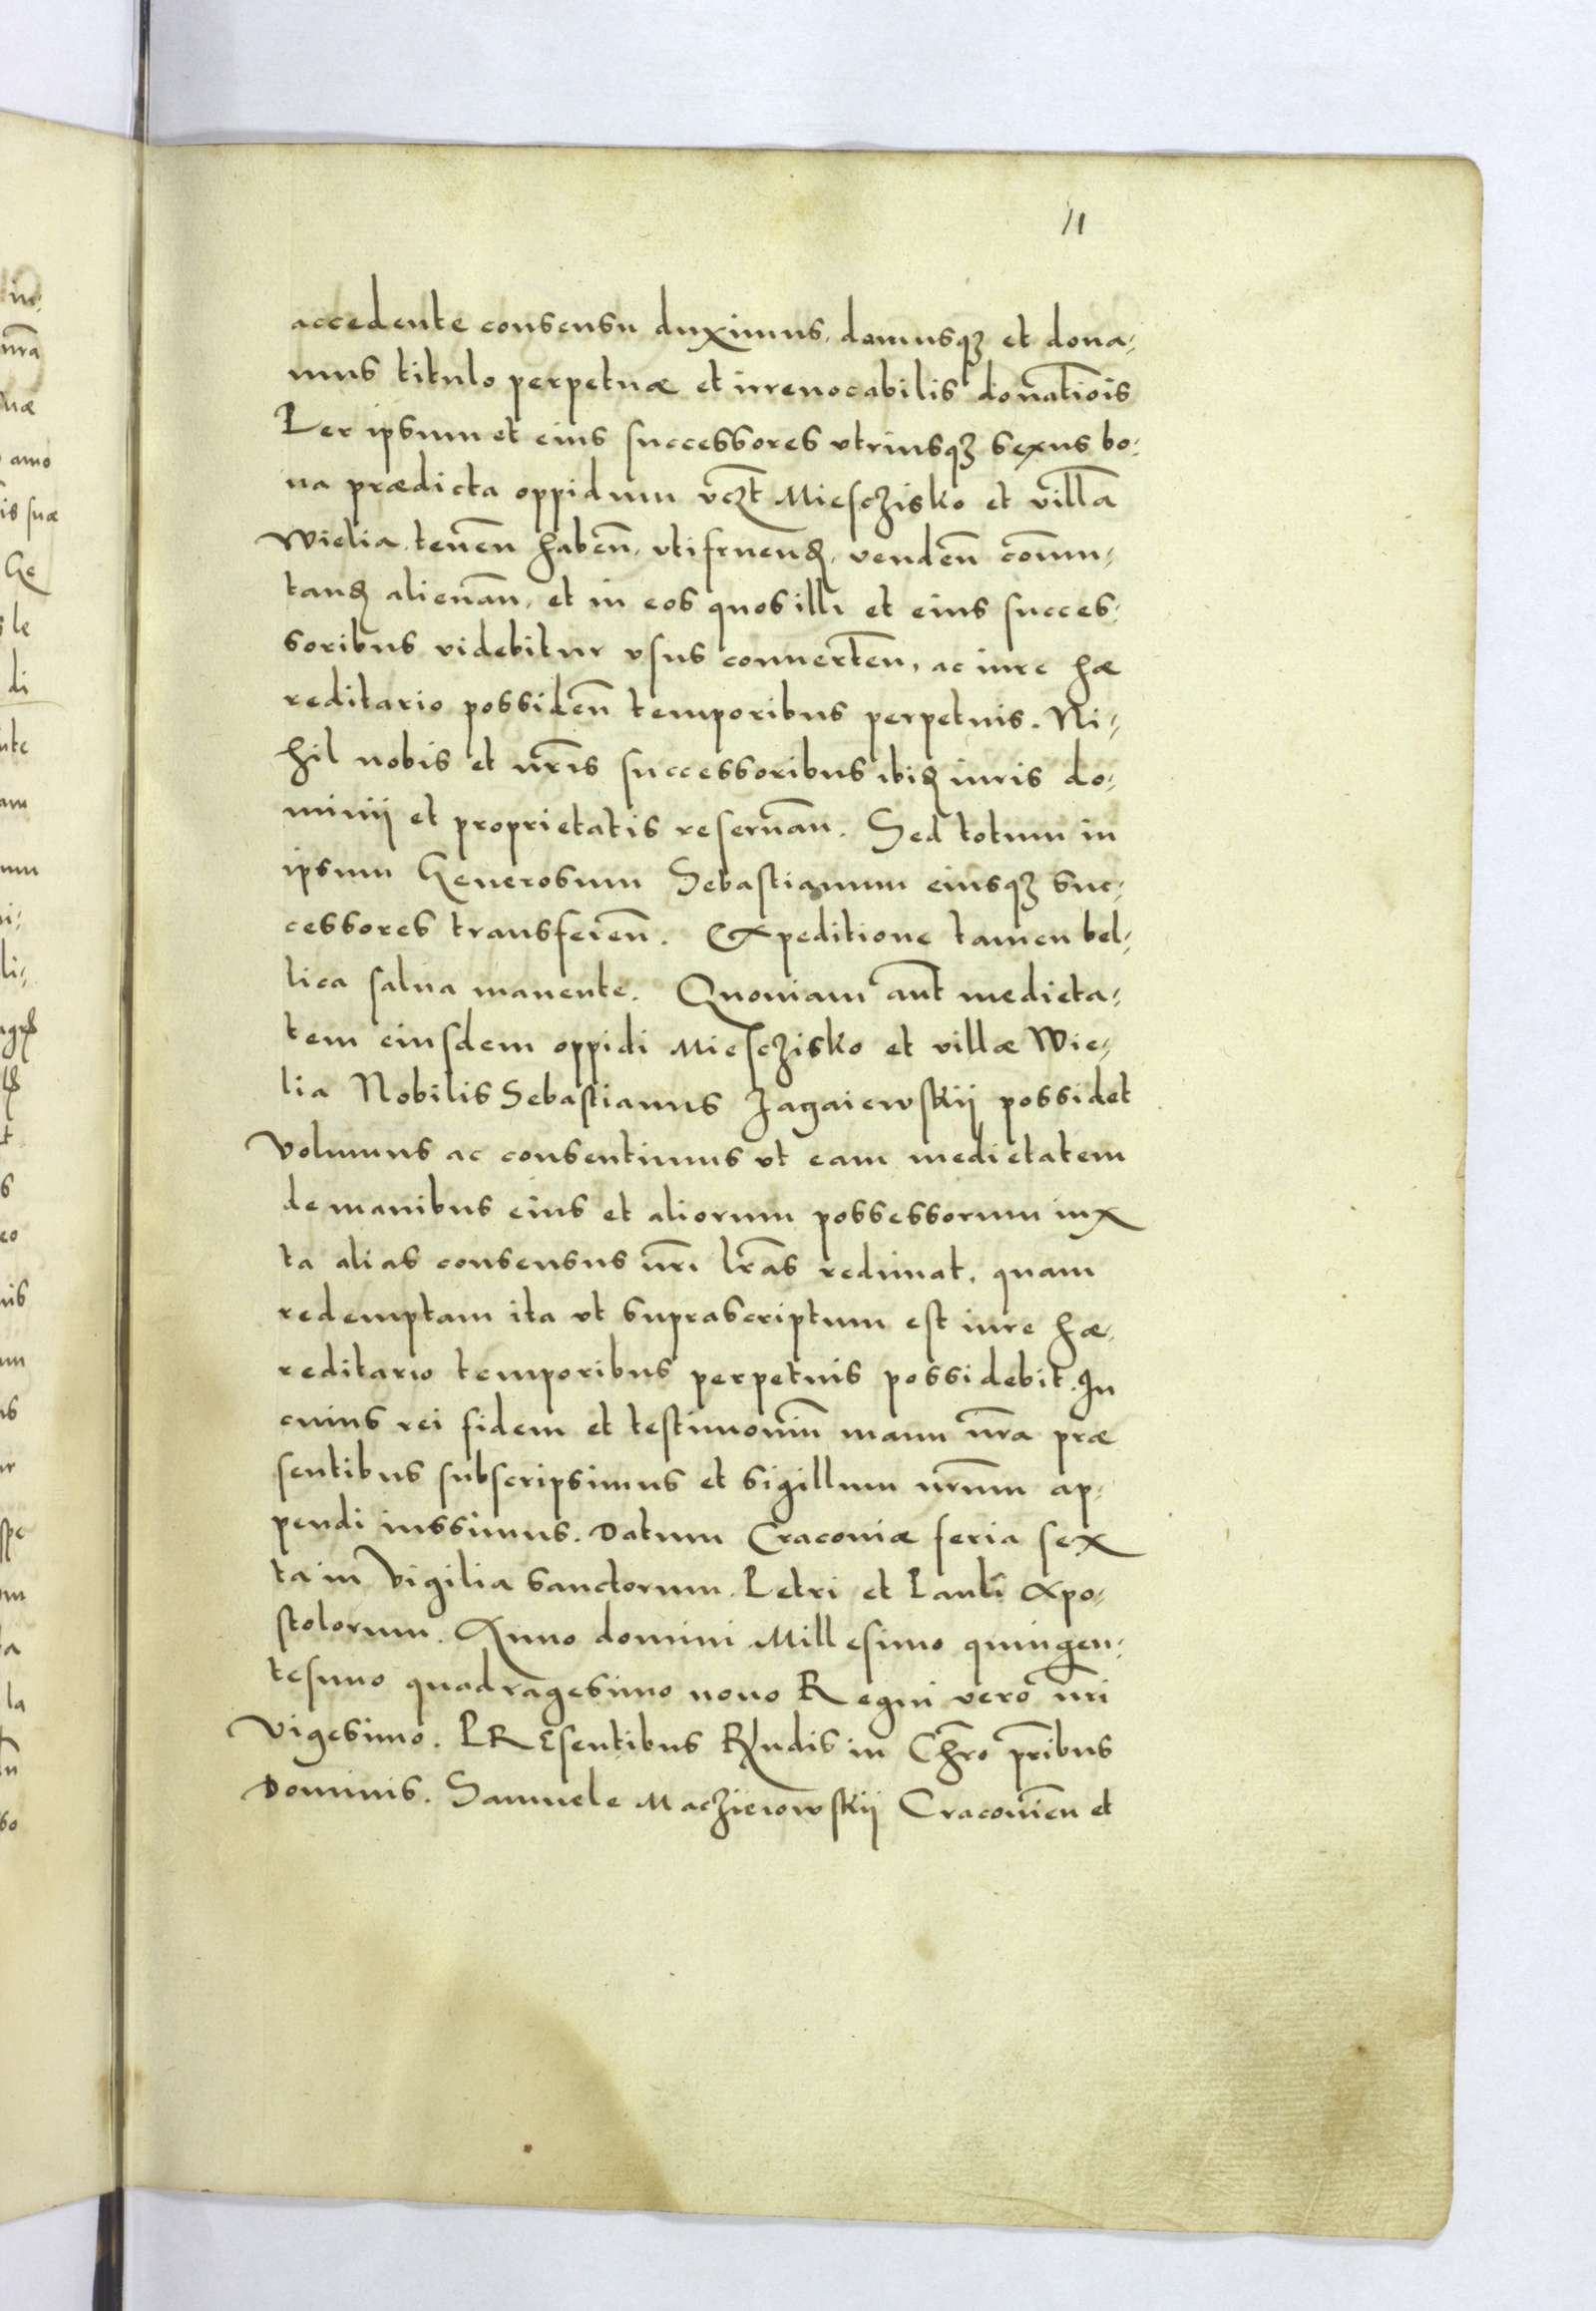 11
accedente consensu duximus, damusqȝ et dona⸗
mus titulo perpetuæ et irreuocabilis donatiōis
Per ipsum et eius successores vtriusqȝ sexus bo⸗
na prædicta oppidum vcȝt Miesczisko et villā
Wielia teneñ habeñ, vtifruenđ, vendeñ com̄u⸗
tanđ alienañ, et in eos quos illi et eius succes⸗
soribus videbitur vsus conuerteñ, ac iure hæ
reditario possideñ temporibus perpetuis. Ni⸗
hil nobis et nr̄is successoribus ibiđ iuris do⸗
minij et proprietatis reseruañ. Sed totum in
ipsum Generosum Sebastianum eiusqȝ suc⸗
cessores transfereñ. Expeditione tamen bel⸗
lica salua manente. Quoniam aūt medieta⸗
tem eiusdem oppidi Miesczisko et villæ Wie⸗
lia Nobilis Sebastianus Jagaiewskij possidet
Volumus ac consentimus vt eam medietatem
de manibus eius et aliorum possessorum iux
ta alias consensus nr̄i lr̄as redimat, quam
redemptam ita vt suprascriptum est iure hæ⸗
reditario temporibus perpetuis possidebit. In
cuius rei fidem et testimoniū manu nr̄a præ
sentibus subscripsimus et sigillum nr̄um ap⸗
pendi iussimus. Datum Cracouiæ feria sex
ta in Vigilia sanctorum Petri et Pauli Apo⸗
stolorum. Anno domini Millesimo quingen⸗
tesimo quadragesimo nono Regni vero nr̄i
Vigesimo. PREsentibus Rn̄dis in Chr̄o pr̄ibus
Dominis. Samuele Maczieiowskij Cracouieñ et